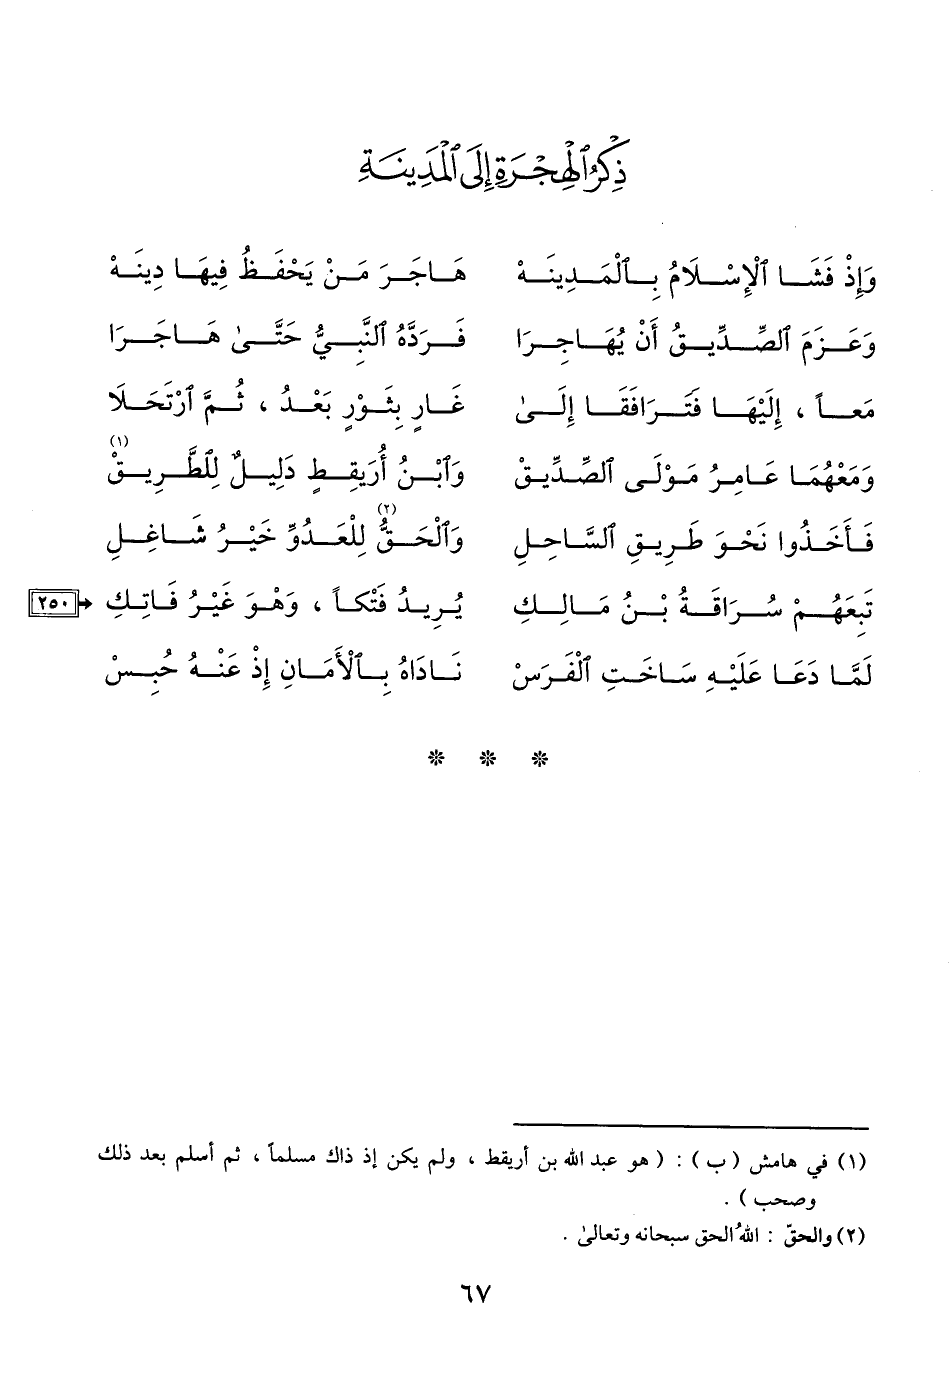 ذِكْرُ ٱلْهِجْرَةِ إِلَى ٱلْمَدِينَةِ
وَإِذْ فَشَا ٱلْإِسْلَامُ بِٱلْمَدِينَهْ هَاجَرَ مَنْ يَحْفَظُ فِيهَا دِينَهْ
وَعَزَمَ ٱلصِّدِّيقُ أَنْ يُهَاجِرَا فَرَدَّهُ ٱلنَّبِيُّ حَتَّىٰ هَاجَرَا
مَعاً ، إِلَيْهَا فَتَرَافَقَا إِلَىٰ غَارٍ بِثَوْرٍ بَعْدُ ، ثُمَّ ٱرْتَحَلَا
وَمَعْهُمَا عَامِرُ مَوْلَى ٱلصِّدِّيقْ وَٱبْنُ أُرَيقِطٍ دَلِيلٌ لِلطَّرِيقْ (١)
فَأَخَذُوا نَحْوَ طَرِيقِ ٱلسَّاحِلِ وَٱلْحَقُّ (٢) لِلْعَدُوِّ خَيْرُ شَاغِلِ
تَبِعَهُمْ سُرَاقَةُ بْنُ مَالِكِ يُرِيدُ فَتْكاً ، وَهْوَ غَيْرُ فَاتِكِ ٢٥٠
لَمَّا دَعَا عَلَيْهِ سَاخَتِ ٱلْفَرَسْ نَادَاهُ بِٱلْأَمَانِ إِذْ عَنْهُ حُبِسْ
* * *
(١) في هامش ( ب ) : ( هو عبد الله بن أريقط ، ولم يكن إذ ذاك مسلماً ، ثم أسلم بعد ذلك
وصحب ) .
(٢) والحقّ : اللهُ الحق سبحانه وتعالىٰ .
٦٧